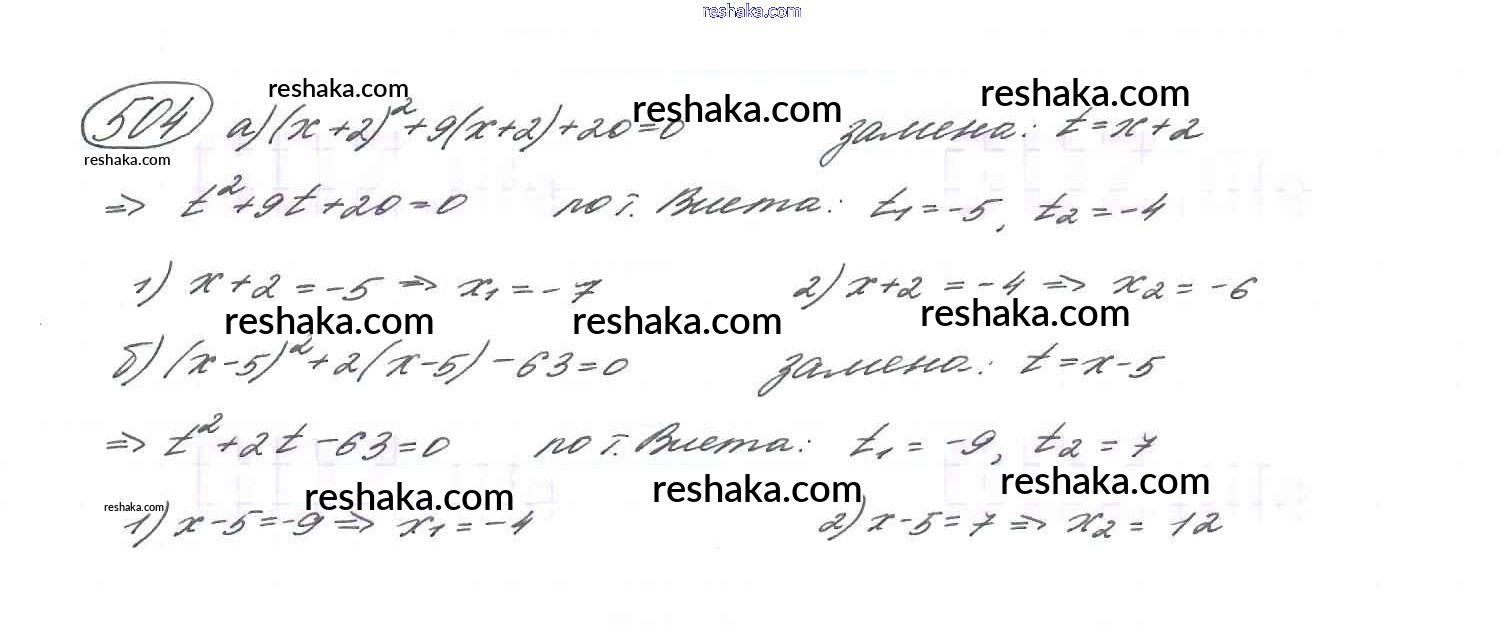 reshaka.com
reshaka.com reshaka.com reshaka.com
504 а) (x+2)²+9(x+2)+20=0 замена: t=x+2
reshaka.com
=> t²+9t+20=0 по т. Виета: t₁=-5, t₂=-4
1) x+2=-5 => x₁=-7 2) x+2=-4 => x₂=-6
reshaka.com reshaka.com reshaka.com
б) (x-5)²+2(x-5)-63=0 замена: t=x-5
=> t²+2t-63=0 по т. Виета: t₁=-9, t₂=7
reshaka.com reshaka.com reshaka.com reshaka.com
1) x-5=-9 => x₁=-4 2) x-5=7 => x₂=12